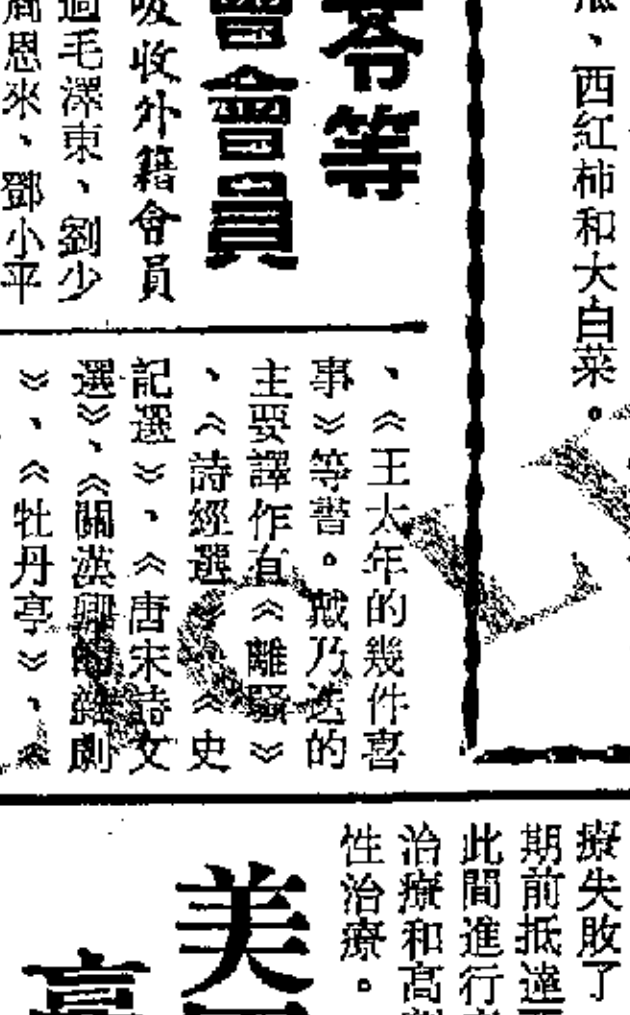 瓜、西紅柿和大白菜。
苓等
會會員
吸收外籍會員
過毛澤東、劉少
周恩來、鄧小平
、《王大年的幾件喜
事》等書。戴乃迭的
主要譯作有《離騷》
、《詩經選》《史
記選》、《唐宋詩文
選》、《關漢卿的雜劇
》、《牡丹亭》、《
療失敗了
期前抵達
此間進行
治療和高
性治療。
美